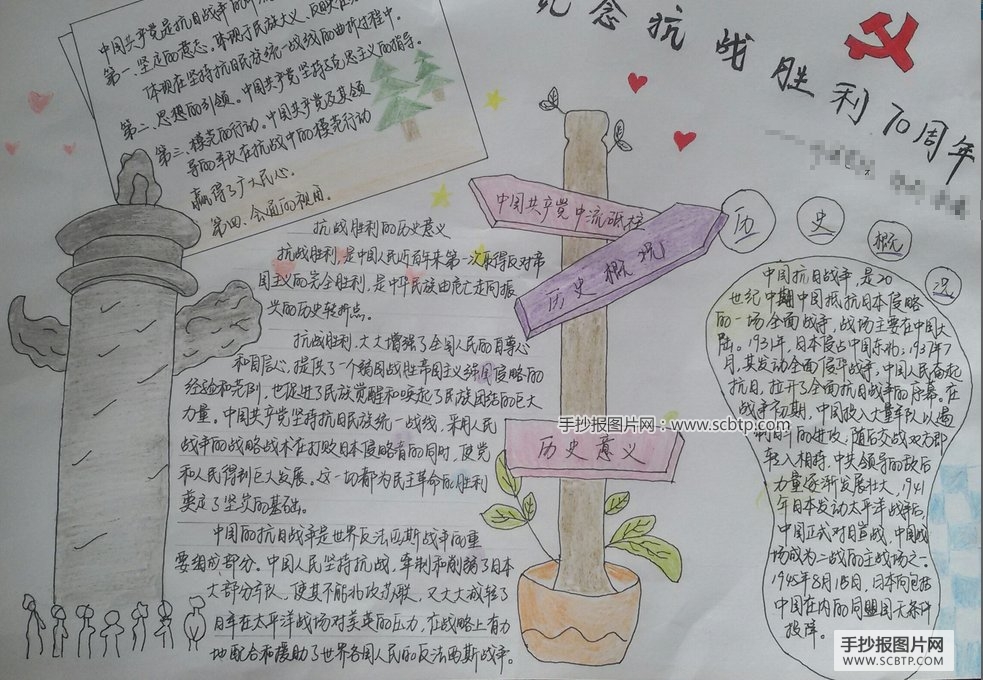 纪念抗战胜利70周年
中国共产党是抗日战争的中流
第一、坚定的意志。体现于民族大义、反映在
体现在坚持抗日民族统一战线的曲折过程中。
第二、思想的引领。中国共产党坚持马克思主义的指导。
第三、模范的行动。中国共产党及其领
导的军队在抗战中的模范行动
赢得了广大民心。
第四、全面的视角。
抗战胜利的历史意义
抗战胜利,是中国人民近百年来第一次取得反对帝
国主义的完全胜利,是中华民族由危亡走向振
兴的历史转折点。
抗战胜利,大大增强了全国人民的自尊心
和自信心,提供了一个弱国战胜帝国主义强国侵略的
经验和先例,也促进了民族觉醒和唤起了民族团结的巨大
力量。中国共产党坚持抗日民族统一战线,采用人民
战争的战略战术在打败日本侵略者的同时,使党
和人民得到巨大发展。这一切都为民主革命的胜利
奠定了坚实的基础。
中国的抗日战争是世界反法西斯战争的重
要组成部分。中国人民坚持抗战,牵制和削弱了日本
大部分军队,使其不能北攻苏联,又大大减轻了
日军在太平洋战场对美英的压力,在战略上有力
地配合和援助了世界各国人民的反法西斯战争。
中国共产党中流砥柱
历史概况
历史意义
手抄报图片网:www.scbtp.com
历史概况
中国抗日战争,是20
世纪中期中国抵抗日本侵略
的一场全面战争,战场主要在中国大
陆。1931年,日本侵占中国东北;1937年7
月,其发动全面侵华战争,中国人民奋起
抗日,拉开了全面抗日战争的序幕。在
战争初期,中国投入大量军队以遏
制日军的进攻,随后交战双方即
转入相持。中共领导的敌后
力量逐渐发展壮大,1941
年日本发动太平洋战争后,
中国正式对日宣战,中国战
场成为二战的主战场之一。
1945年8月15日,日本向包括
中国在内的同盟国无条件
投降。
手抄报图片网
WWW.SCBTP.COM